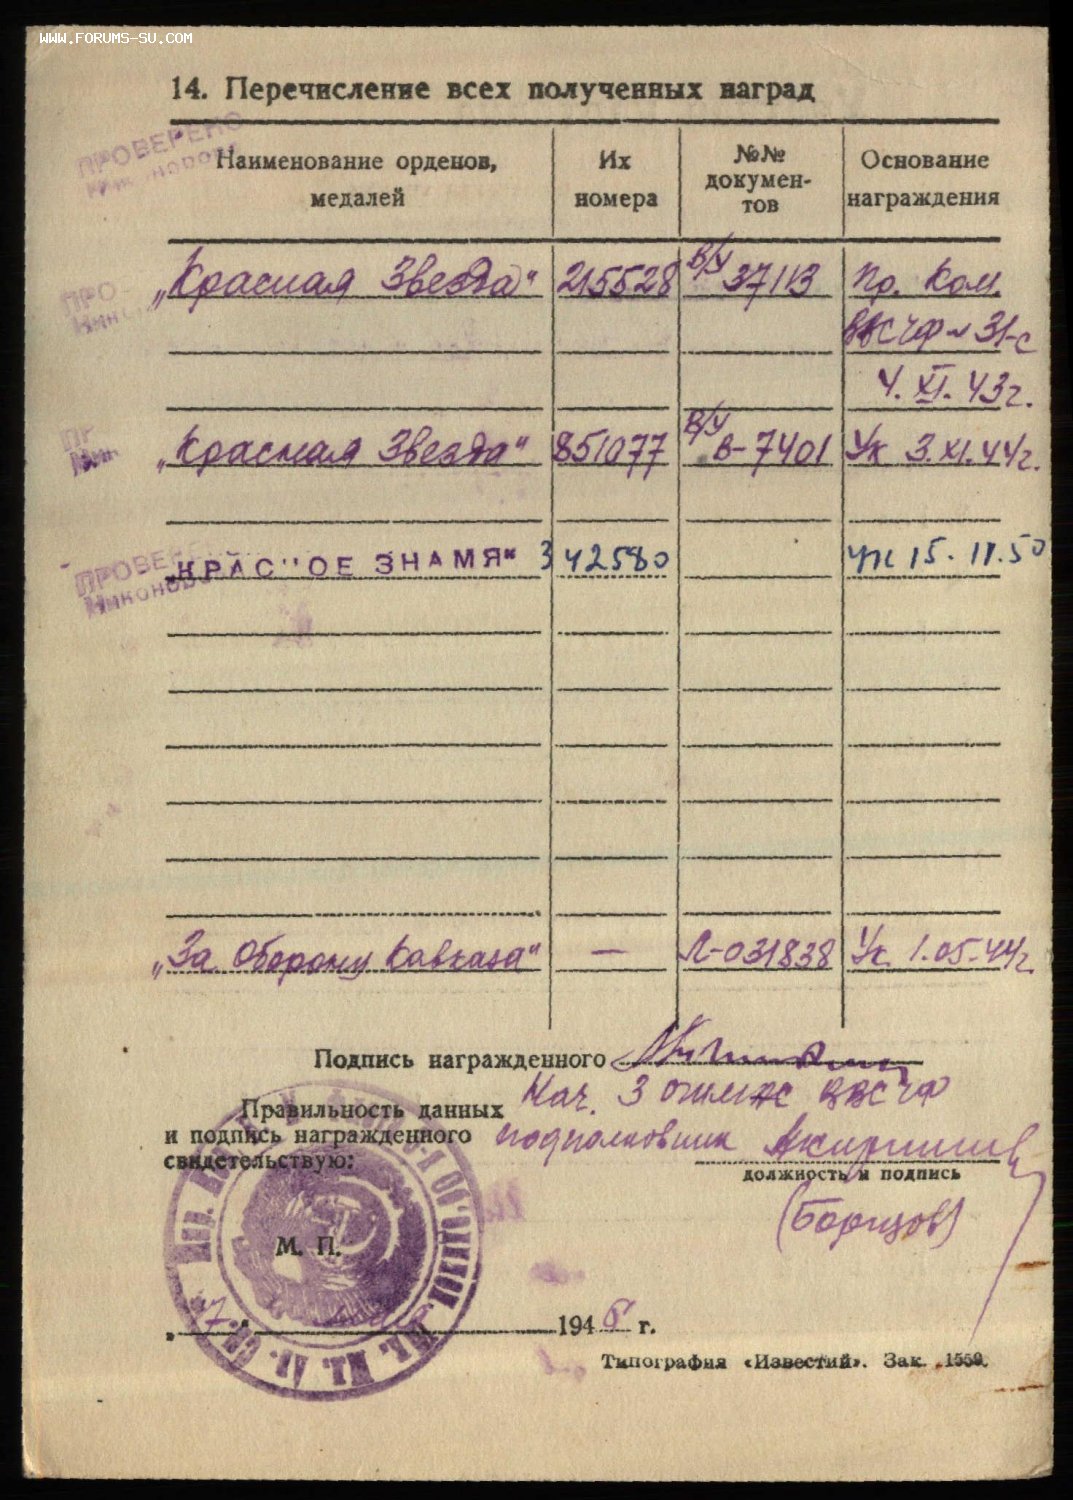 WWW.FORUMS-SU.COM
14. Перечисление всех полученных наград
ПРОВЕРЕНО
Наименование орденов, медалей
Их номера
№№ докумен-тов
Основание награждения
„Красная Звезда" 215528 в/у 37113 Пр. Ком.
ВВС ЧФ № 31-с
4. XI. 43г.
„Красная Звезда" 851077 в/у В-7401 Ук 3.XI.44г.
ПРОВЕРЕНО
Никонова
„КРАСНОЕ ЗНАМЯ" 342580 Ук 15.11.50
„За Оборону Кавказа" — Л-031838 Ук. 1.05.44г.
Подпись награжденного
Правильность данных
и подпись награжденного
свидетельствую:
Нач. 3 ВВС ЧФ
подполковник
должность и подпись
(Борщов)
М. П.
194 г.
Типография «Известий». Зак. 1559.